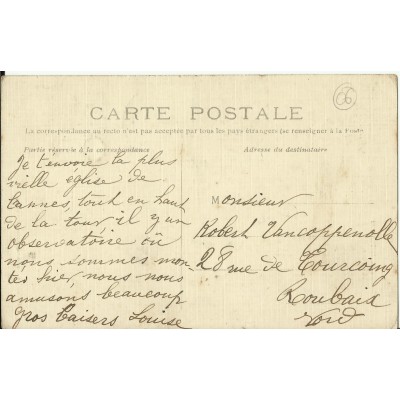 06
CARTE POSTALE
La correspondance au recto n'est pas acceptée par tous les pays étrangers (se renseigner à la Poste
Partie réservée à la correspondance
Adresse du destinataire
Je t'envoie la plus
vielle église de
Cannes, tout en haut
de la tour, il y un
observatoire où
nous sommes mon-
tés hier, nous nous
amusons beaucoup
gros baisers Louise
Monsieur
Robert Vancoppenolle
28 rue de Tourcoing
Roubaix
Nord